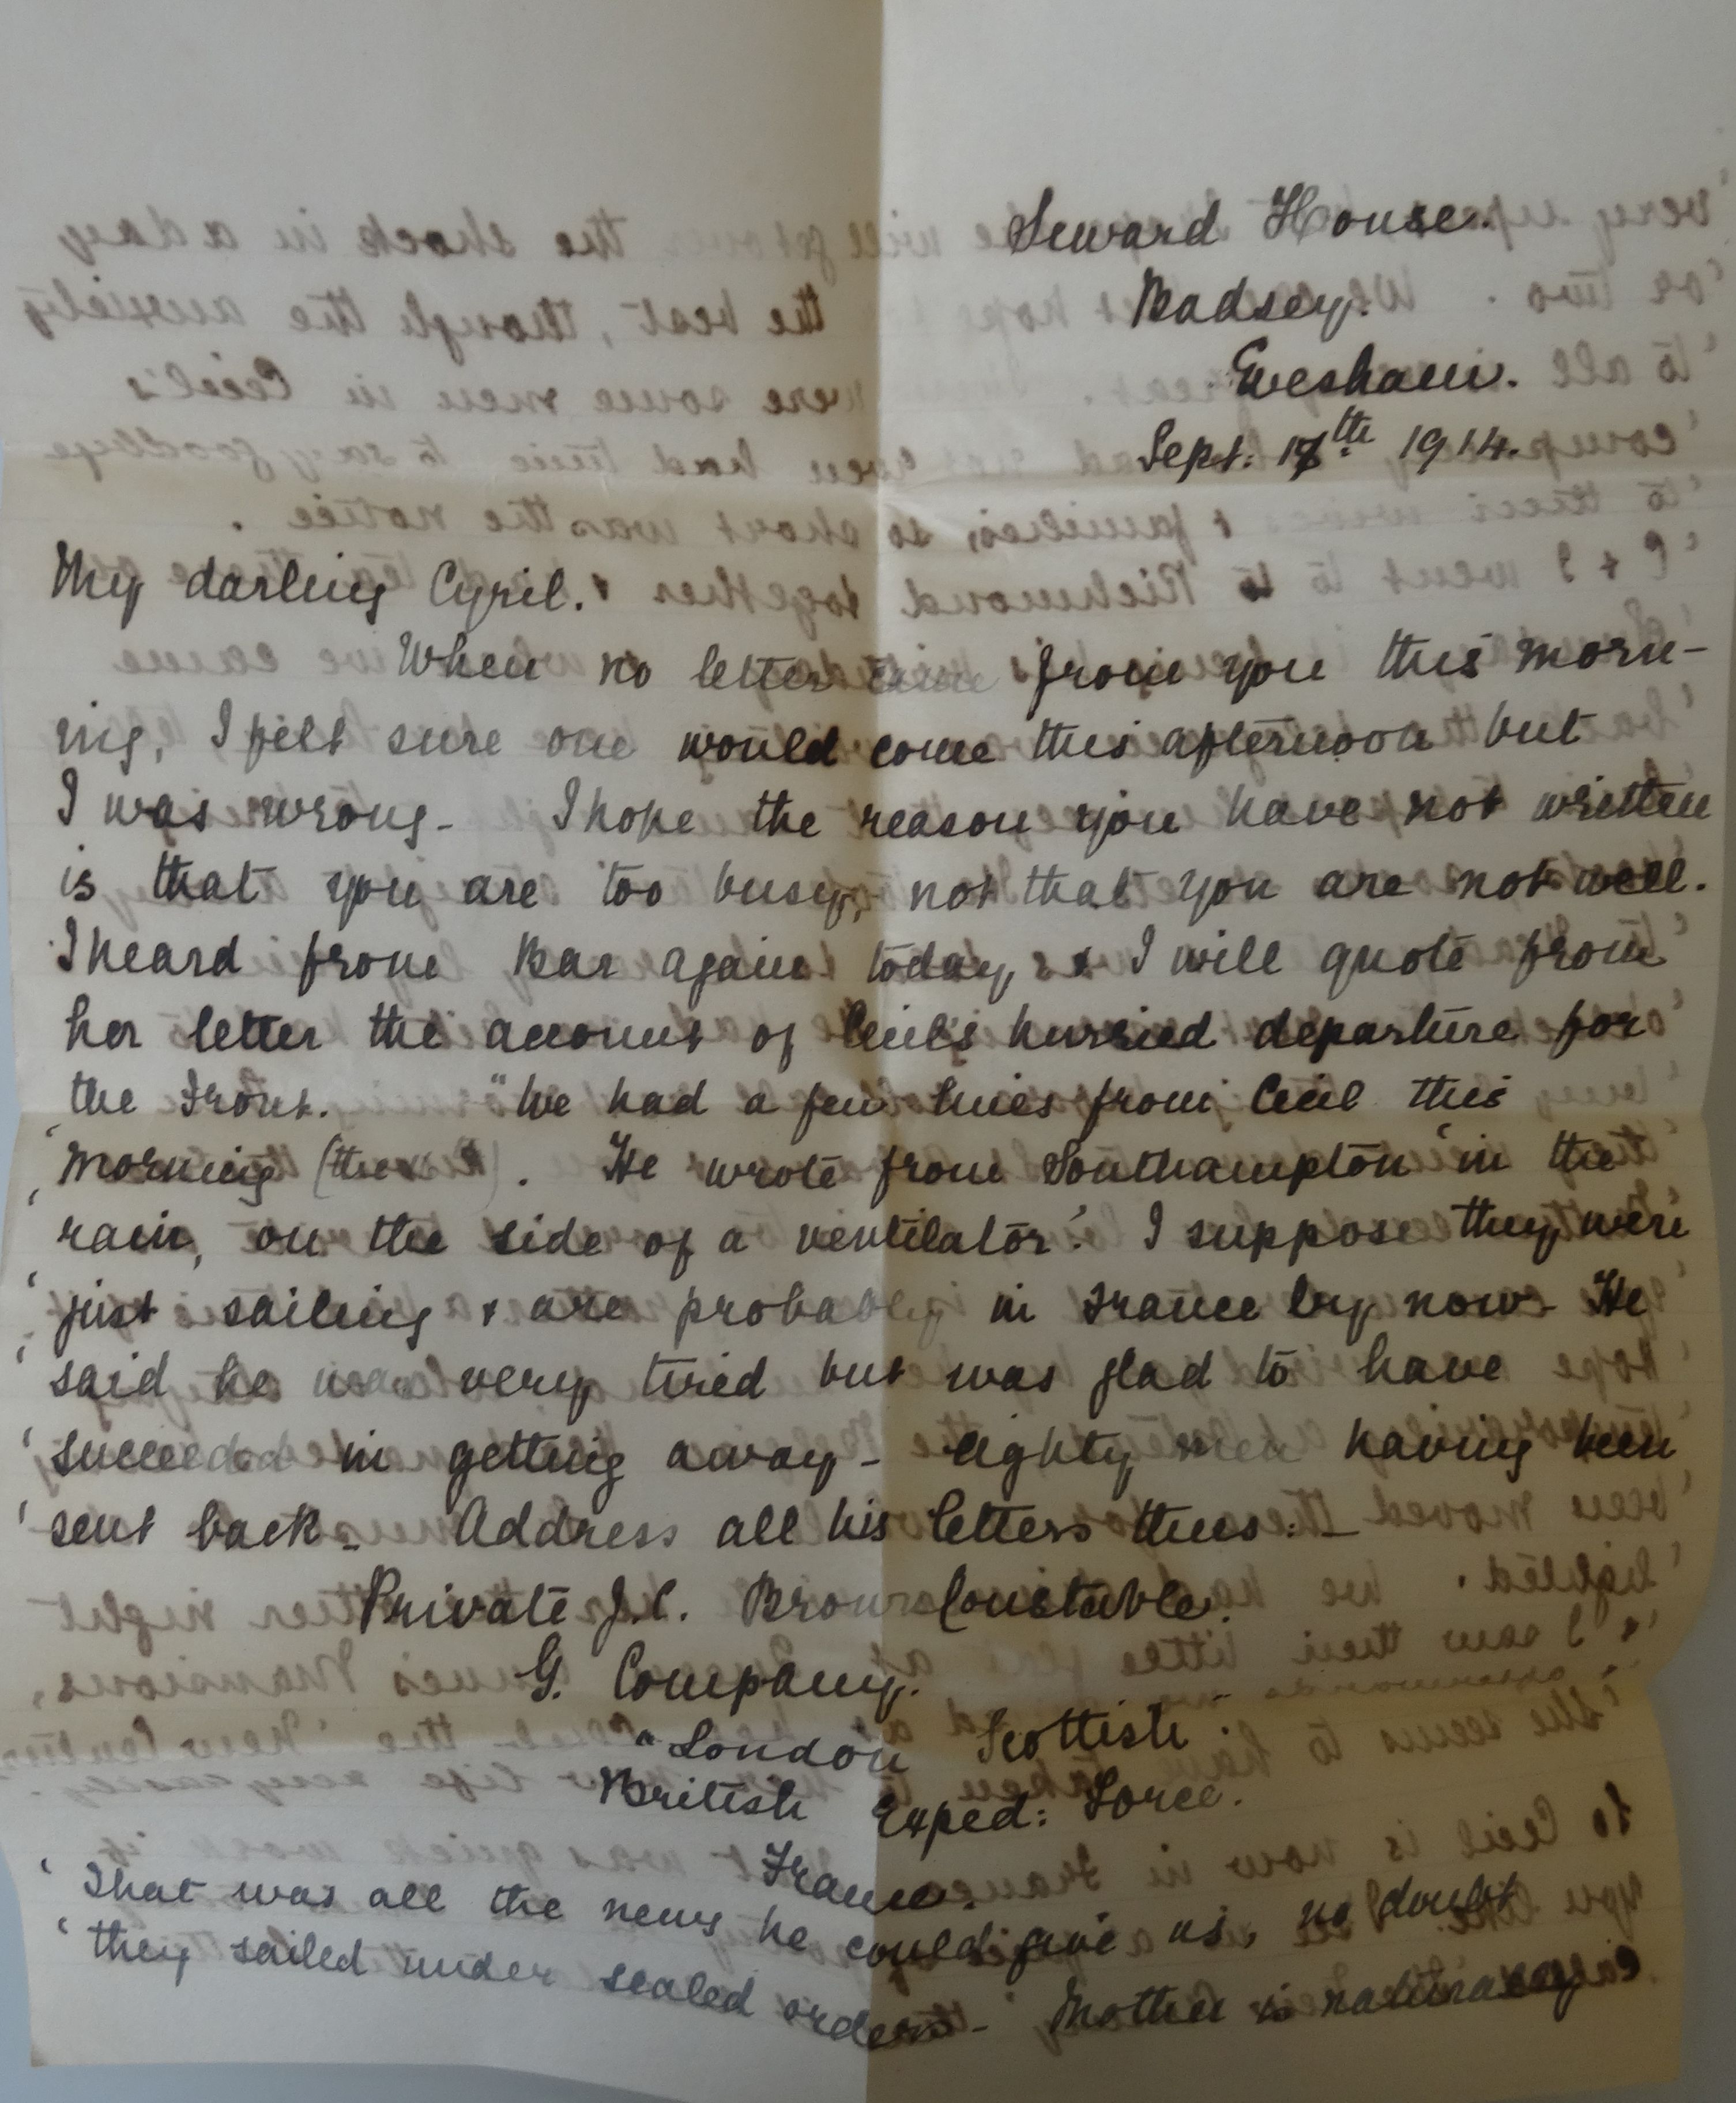 Seward House.
Badsey.
Evesham.
Sept: 17th 1914.
My darling Cyril.
When no letter came from you this morn-
ing, I felt sure one would come this afternoon but
I was wrong - I hope the reason you have not written
is that you are too busy, not that you are not well.
I heard from Bar again today, & I will quote from
her letter the account of Cecil's hurried departure for
the Front. "We had a few lines from Cecil this
'morning. He wrote from Southampton 'in the
'rain, on the side of a ventilator'. I suppose they were
'just sailing & are probably in France by now - He
'said he was very tired but was glad to have
'succeeded in getting away - eighty men having been
'sent back - Address all his letters thus: -
Private J.C. Brown Constable.
G. Company.
London Scottish.
British Exped: Force.
France.
'That was all the news he could give us, no doubt
'they sailed under sealed orders - Mother is naturally